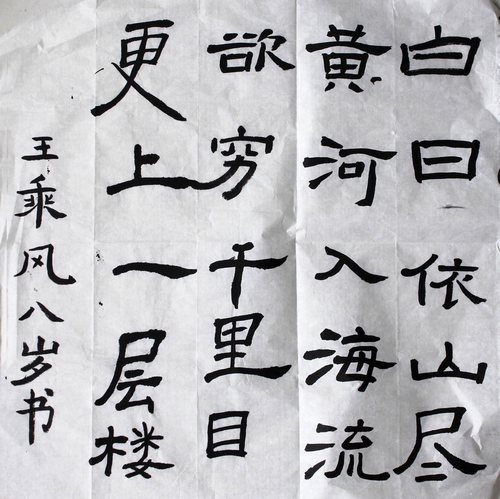 白日依山尽
黄河入海流
欲穷千里目
更上一层楼
王乘风八岁书